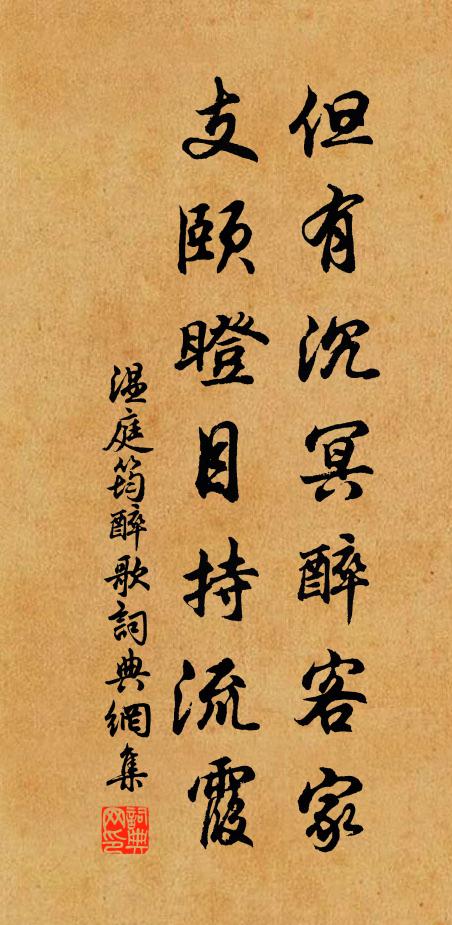 但有沉冥醉客家
支頤瞪目持流霞
温庭筠醉歌詞典網集
詞典网印